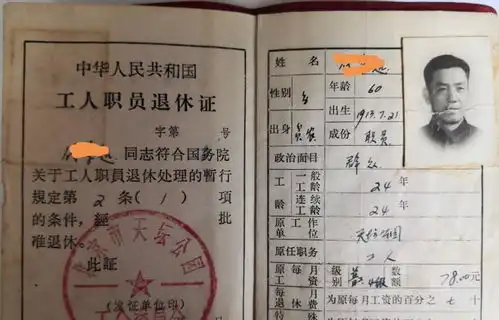 中华人民共和国
工人职员退休证
字第 号
同志符合国务院
关于工人职员退休处理的暂行
规定第 2 条(1)项
的条件，经 批
准退休。
此证
北京市天坛公园
(发证单位印)
姓名
性别 年龄 60
出生 1913.7.21
出身 贫农 成份 职员
政治面目 群众
工龄 一般工龄 24 年
连续工龄 24 年
原工作单位 天坛公园
原任职务 工人
原每月工资 级别 数额 78.00元
每月退休费 为原每月工资的百分之七十